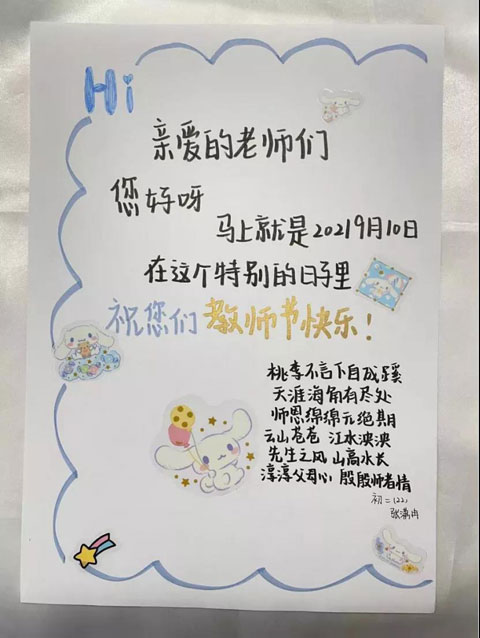 Hi
亲爱的老师们
您好呀
马上就是20219月10日
在这个特别的日子里
祝您们教师节快乐!
桃李不言下自成蹊
天涯海角有尽处
师恩绵绵无绝期
云山苍苍 江水泱泱
先生之风 山高水长
淳淳父母心 殷殷师者情
初二(22)